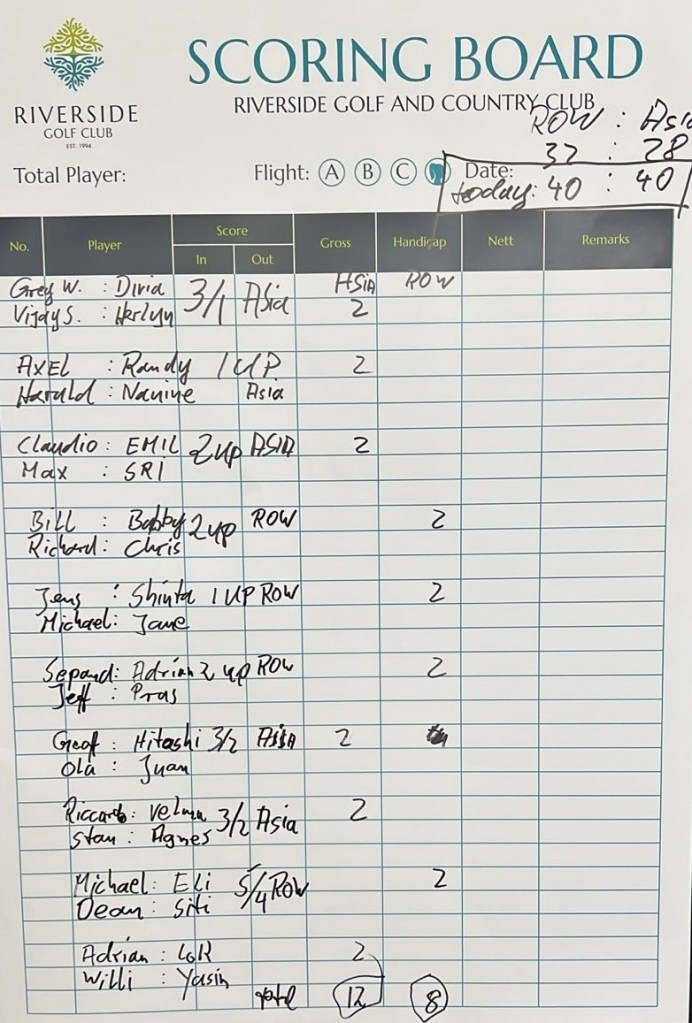 SCORING BOARD
RIVERSIDE GOLF AND COUNTRY CLUB
RIVERSIDE
GOLF CLUB
EST. 1994
ROW : Asia
32 : 28
Total Player: Flight: A B C Date:
today: 40 : 40
No. Player Score Gross Handicap Nett Remarks
In Out
Greg W. : Diria 3/1 Asia ASIA ROW
Vijay S. : Herlyn 2
AXEL : Randy 1 UP 2
Harald : Nanine Asia
Claudio : EMIL 2up ASIA 2
Max : SRI
Bill : Bobby 2up ROW 2
Richard : Chris
Jens : Shinta 1 UP ROW 2
Michael : Jane
Sepand : Adrian 2 up ROW 2
Jeff : Pras
Geof : Hitashi 3/2 ASIA 2
Ola : Juan
Riccardo : Velma 3/2 Asia 2
Stan : Agnes
Michael : Eli 5/4 ROW 2
Dean : Siti
Adrian : 2
Willi : Yasin
total 12 8